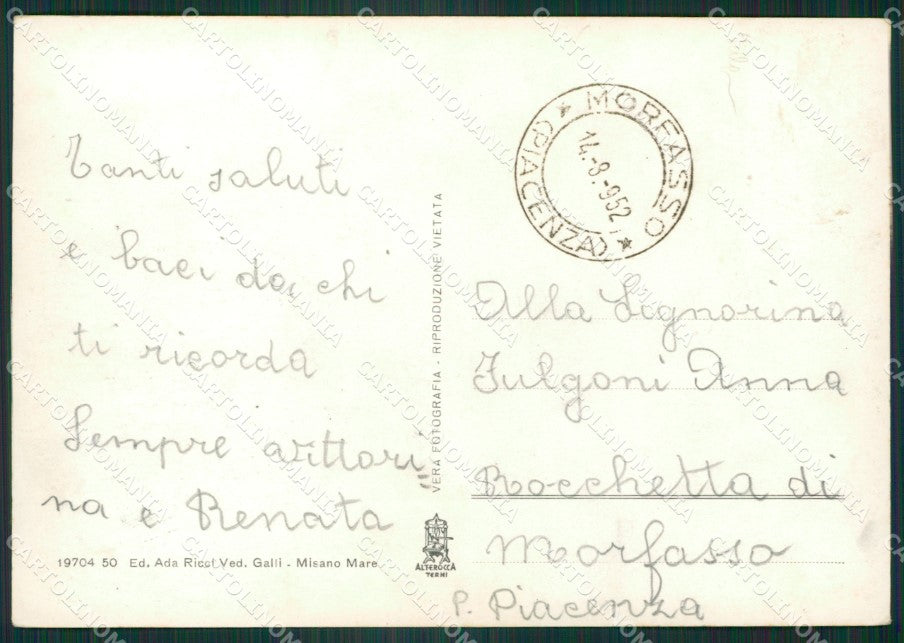 Tanti saluti
e baci da chi
ti ricorda
Sempre vittori
na e Renata
19704 50 Ed. Ada Ricci Ved. Galli - Misano Mare
VERA FOTOGRAFIA - RIPRODUZIONE VIETATA
ALTEROCCA
TERNI
MORFASSO
(PIACENZA)
14.-8.-952
Alla Signorina
Fulgoni Anna
Rocchetta di
Morfasso
P. Piacenza
CARTOLINOMANIA